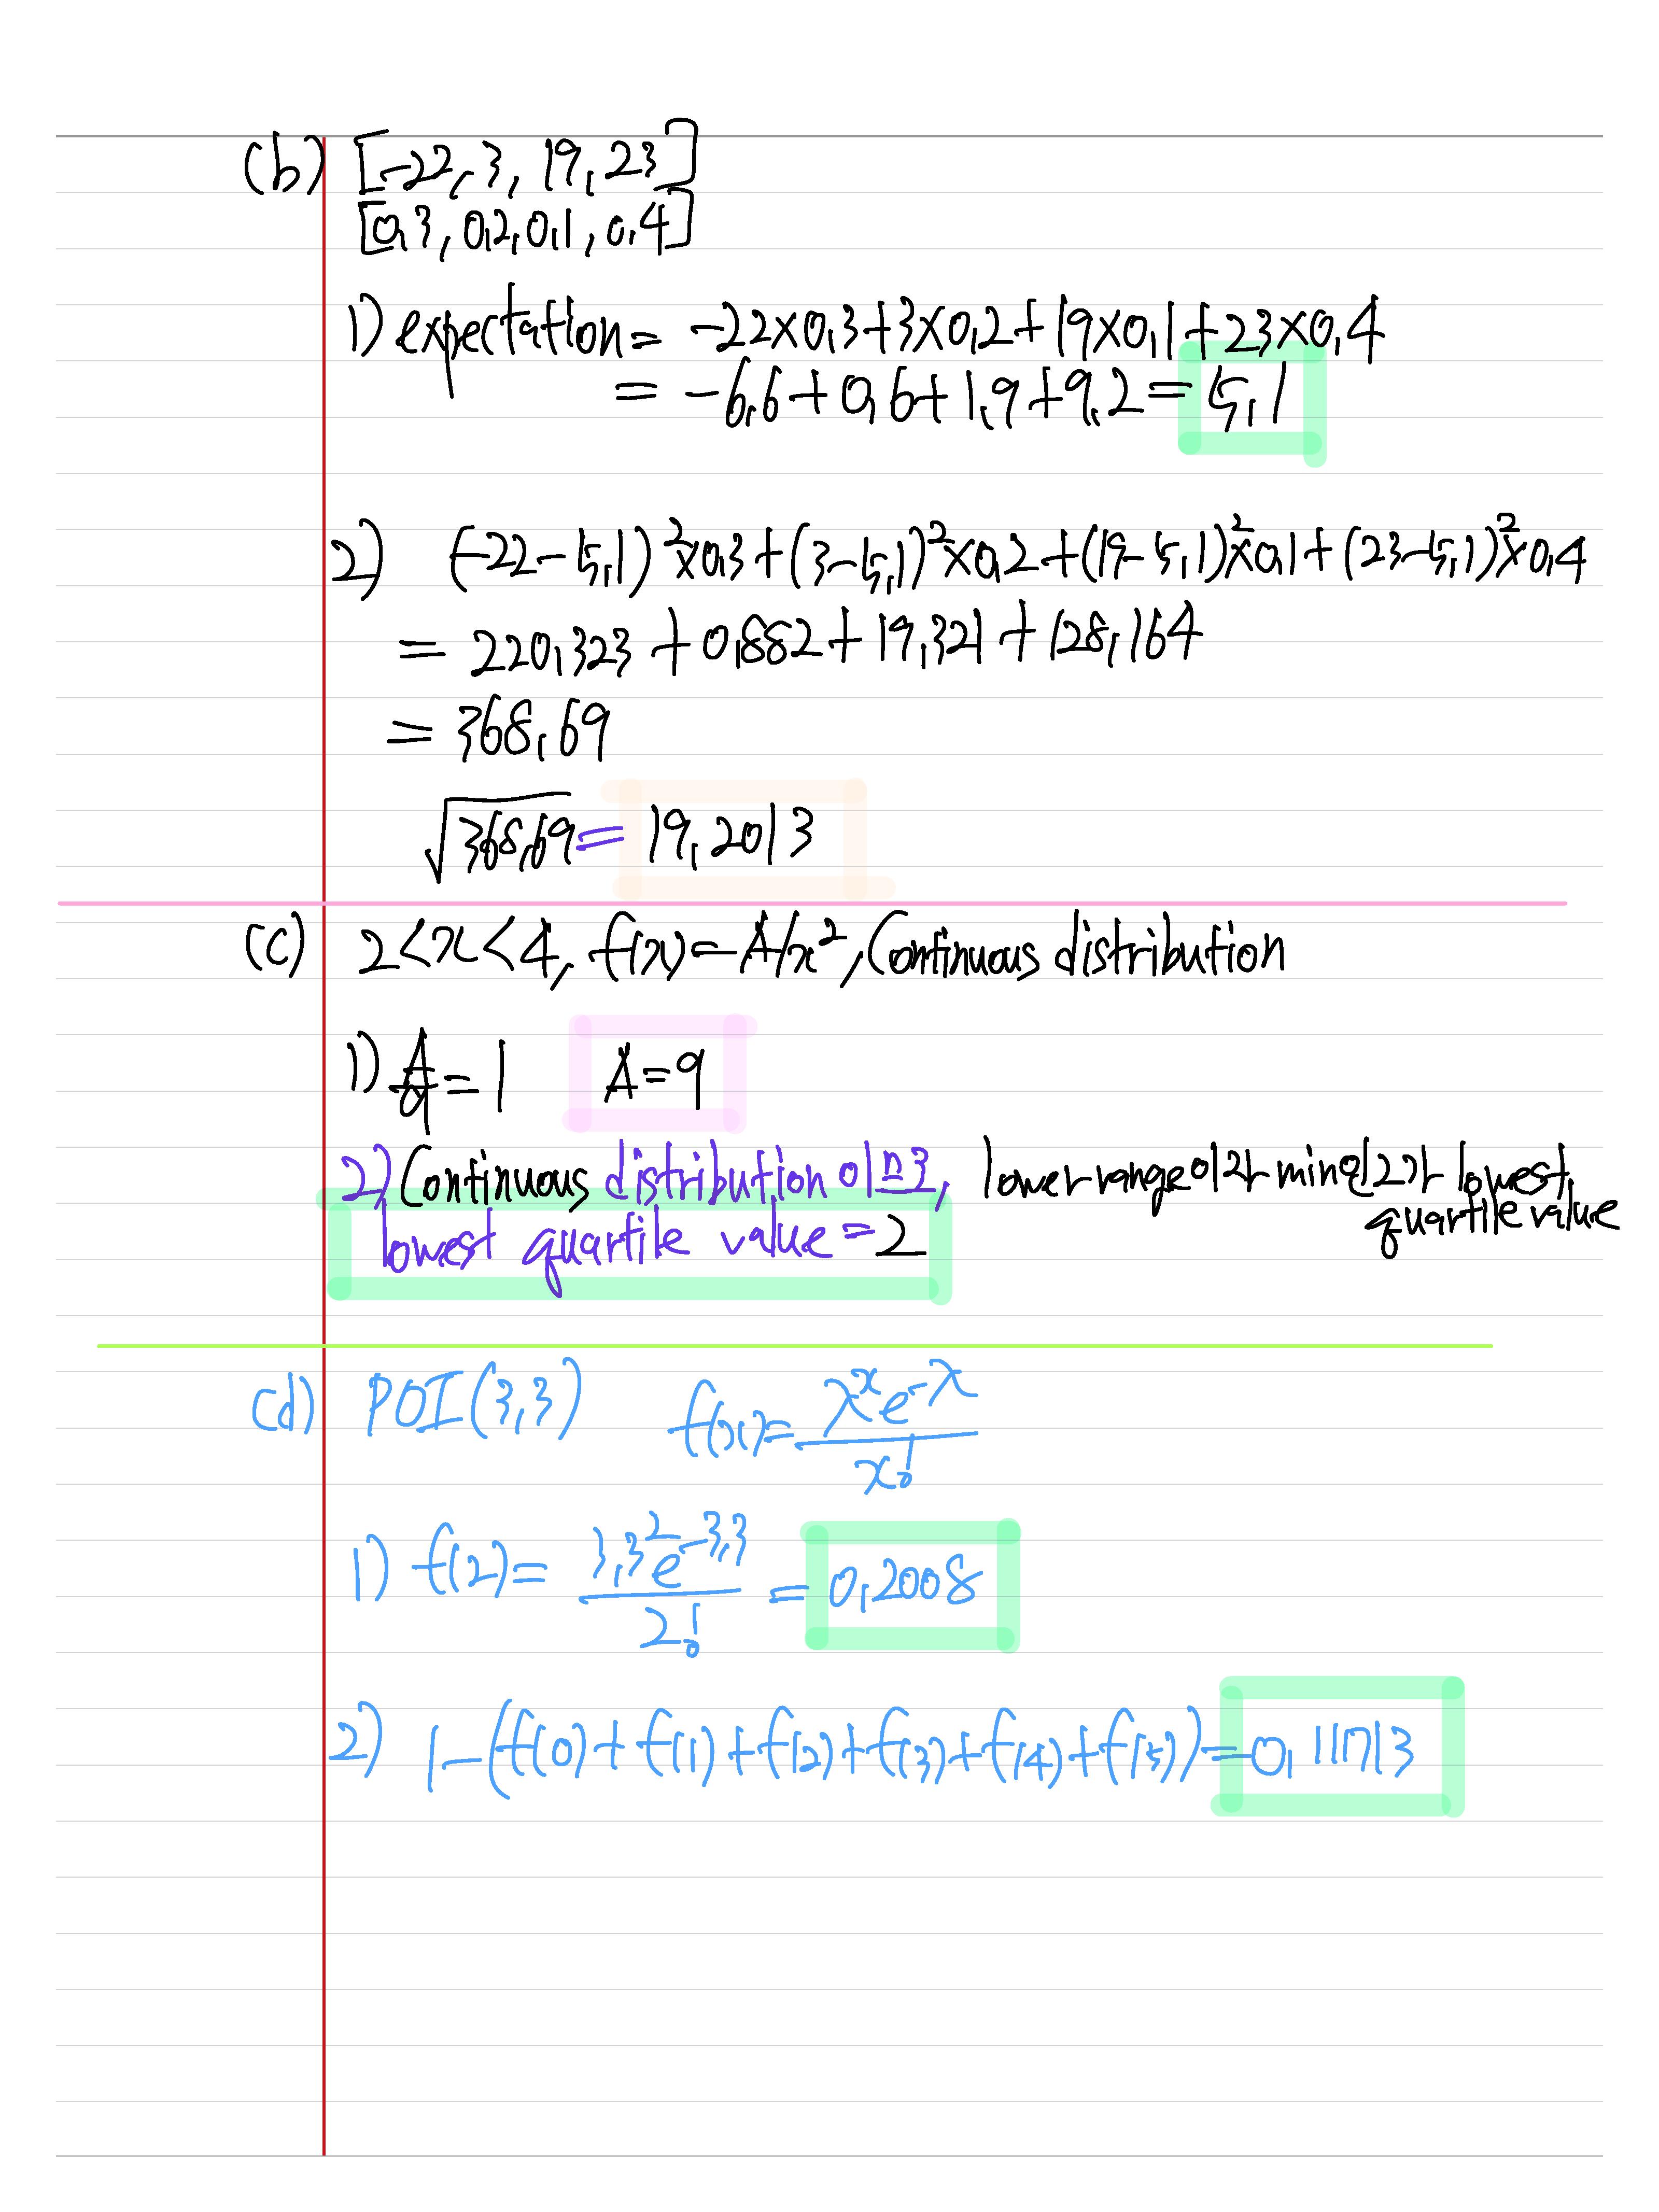 (b) [-22, 3, 19, 23]
[0.3, 0.2, 0.1, 0.4]
1) expectation = -22×0.3+3×0.2+19×0.1+23×0.4
= -6.6+0.6+1.9+9.2=5.1
2) (-22-5.1)²×0.3+(3-5.1)²×0.2+(19-5.1)²×0.1+(23-5.1)²×0.4
= 220.323+0.882+19.321+128.164
= 368.69
√368.69 = 19.2013
(c) 2<x<4, f(x)=A/x², Continuous distribution
1) A/9=1 A=9
2) Continuous distribution 이므로, lower range이 2가 min인 2가 lowest
quartile value
lowest quartile value=2
(d) POI(3.3) f(x)=λˣe^-λ/x!
1) f(2)=3.3²e^-3.3/2! =0.2008
2) 1-(f(0)+f(1)+f(2)+f(3)+f(4)+f(5))=0.11713